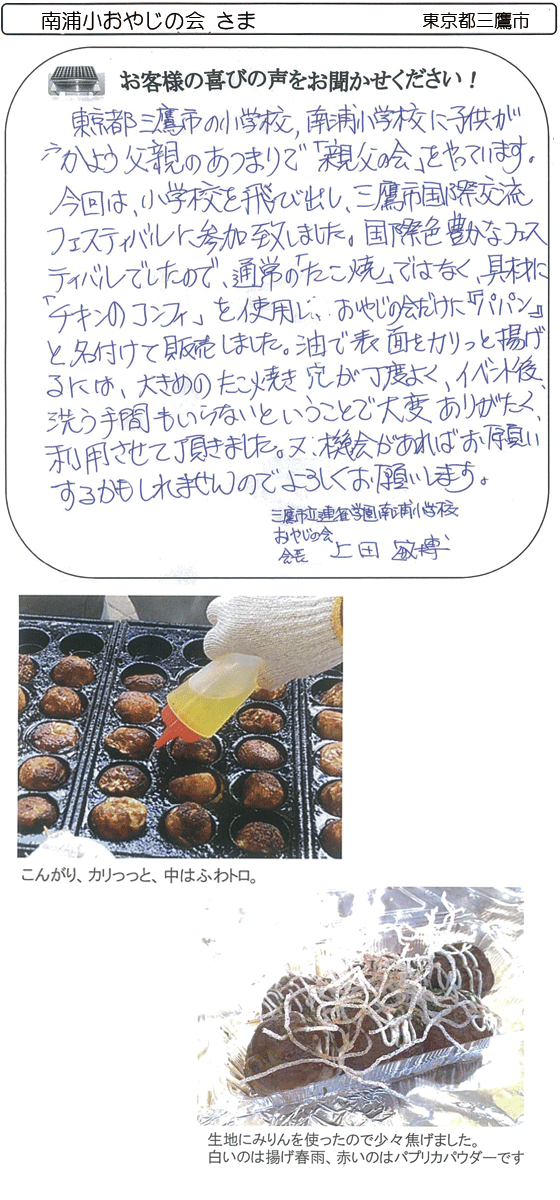 南浦小おやじの会 さま
東京都三鷹市
お客様の喜びの声をお聞かせください！
東京都三鷹市の小学校，南浦小学校に子供が
かよう父親のあつまりで「親父の会」をやっています。
今回は、小学校を飛び出し、三鷹市国際交流
フェスティバルに参加致しました。国際色豊かなフェス
ティバルでしたので、通常の「たこ焼」ではなく、具材に
「チキンのコンフィ」を使用し、おやじの会だけに『パパン』
と名付けて販売しました。油で表面をカリっと揚げ
るには、大きめのたこ焼き穴が丁度よく、イベント後、
洗う手間もいらないということで大変ありがたく、
利用させて頂きました。又、機会があればお願い
するかもしれませんのでよろしくお願いします。
三鷹市立連雀学園南浦小学校
おやじの会
会長 上田 敏博
こんがり、カリっっと、中はふわトロ。
生地にみりんを使ったので少々焦げました。
白いのは揚げ春雨、赤いのはパプリカパウダーです